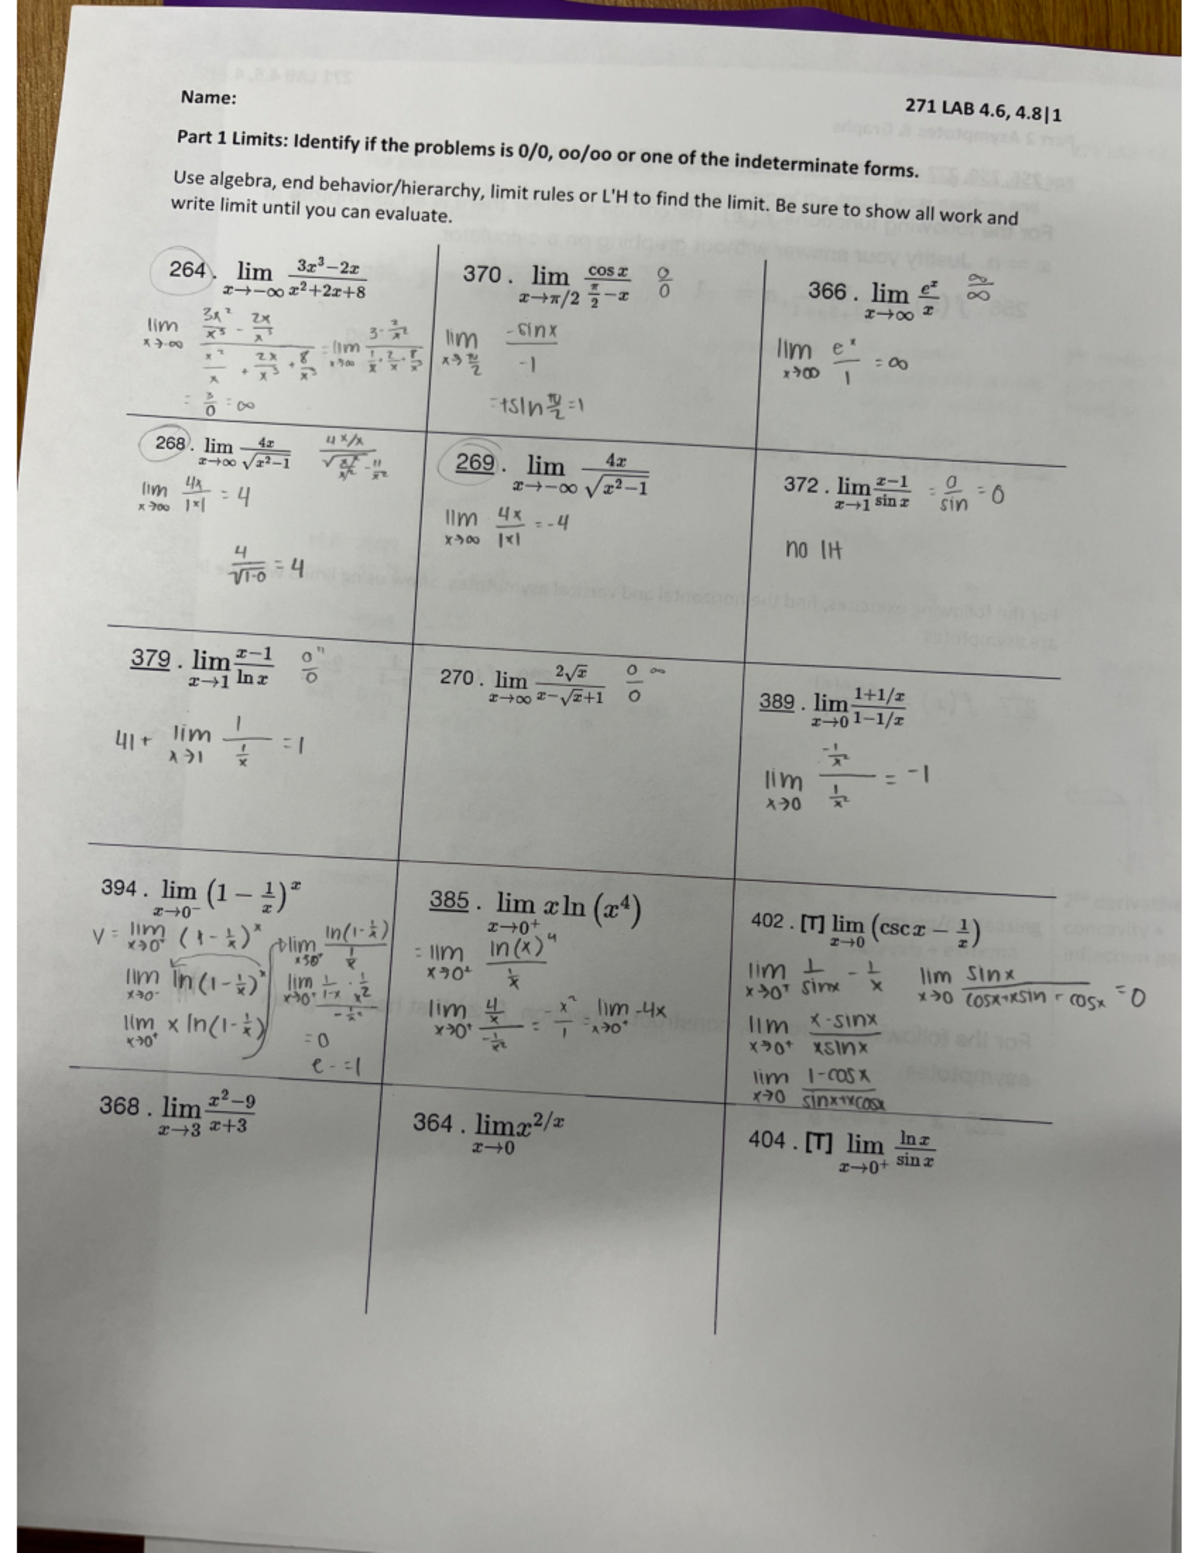 Name:
271 LAB 4.6, 4.8|1
Part 1 Limits: Identify if the problems is 0/0, oo/oo or one of the indeterminate forms.
Use algebra, end behavior/hierarchy, limit rules or L'H to find the limit. Be sure to show all work and
write limit until you can evaluate.
264. lim x→−∞ (3x³−2x)/(x²+2x+8)
= 3/0 = ∞
370. lim x→π/2 (cos x)/(π/2−x) 0/0
lim x→π/2 (-sinx)/(-1)
= +sin π/2 = 1
366. lim x→∞ eˣ/x ∞/∞
lim x→∞ eˣ/1 = ∞
268. lim x→∞ 4x/√(x²−1)
lim x→∞ 4x/|x| = 4
4/√(1-0) = 4
269. lim x→−∞ 4x/√(x²−1)
lim x→∞ 4x/|x| = -4
372. lim x→1 (x−1)/(sin x) = 0/sin = 0
no lH
379. lim x→1 (x−1)/(ln x) 0/0
lim x→1 1/(1/x) = 1
270. lim x→∞ 2√x/(x−√x+1) 0/0 ∞
389. lim x→0 (1+1/x)/(1−1/x)
lim x→0 (-1/x²)/(1/x²) = -1
394. lim x→0⁻ (1 − 1/x)ˣ
lim x→0⁺ (1-1/x)ˣ
lim x→0⁻ ln(1-1/x)ˣ
lim x→0⁺ x ln(1-1/x)
lim ln(1-1/x)/(1/x)
= 0
e = 1
385. lim x→0⁺ x ln (x⁴)
= lim x→0⁺ ln(x)⁴/(1/x)
lim x→0⁺ (4/x)/(-1/x²) = -x²/1 = lim x→0⁺ -4x
402. [T] lim x→0 (csc x − 1/x)
lim x→0⁺ 1/sinx - 1/x
lim x→0⁺ (x-sinx)/(xsinx)
lim x→0 (1-cosx)/(sinx+xcosx)
lim x→0 sinx/(cosx+xsin-cosx) = 0
368. lim x→3 (x²−9)/(x+3)
364. lim x→0 x^(2/x)
404. [T] lim x→0⁺ (ln x)/(sin x)